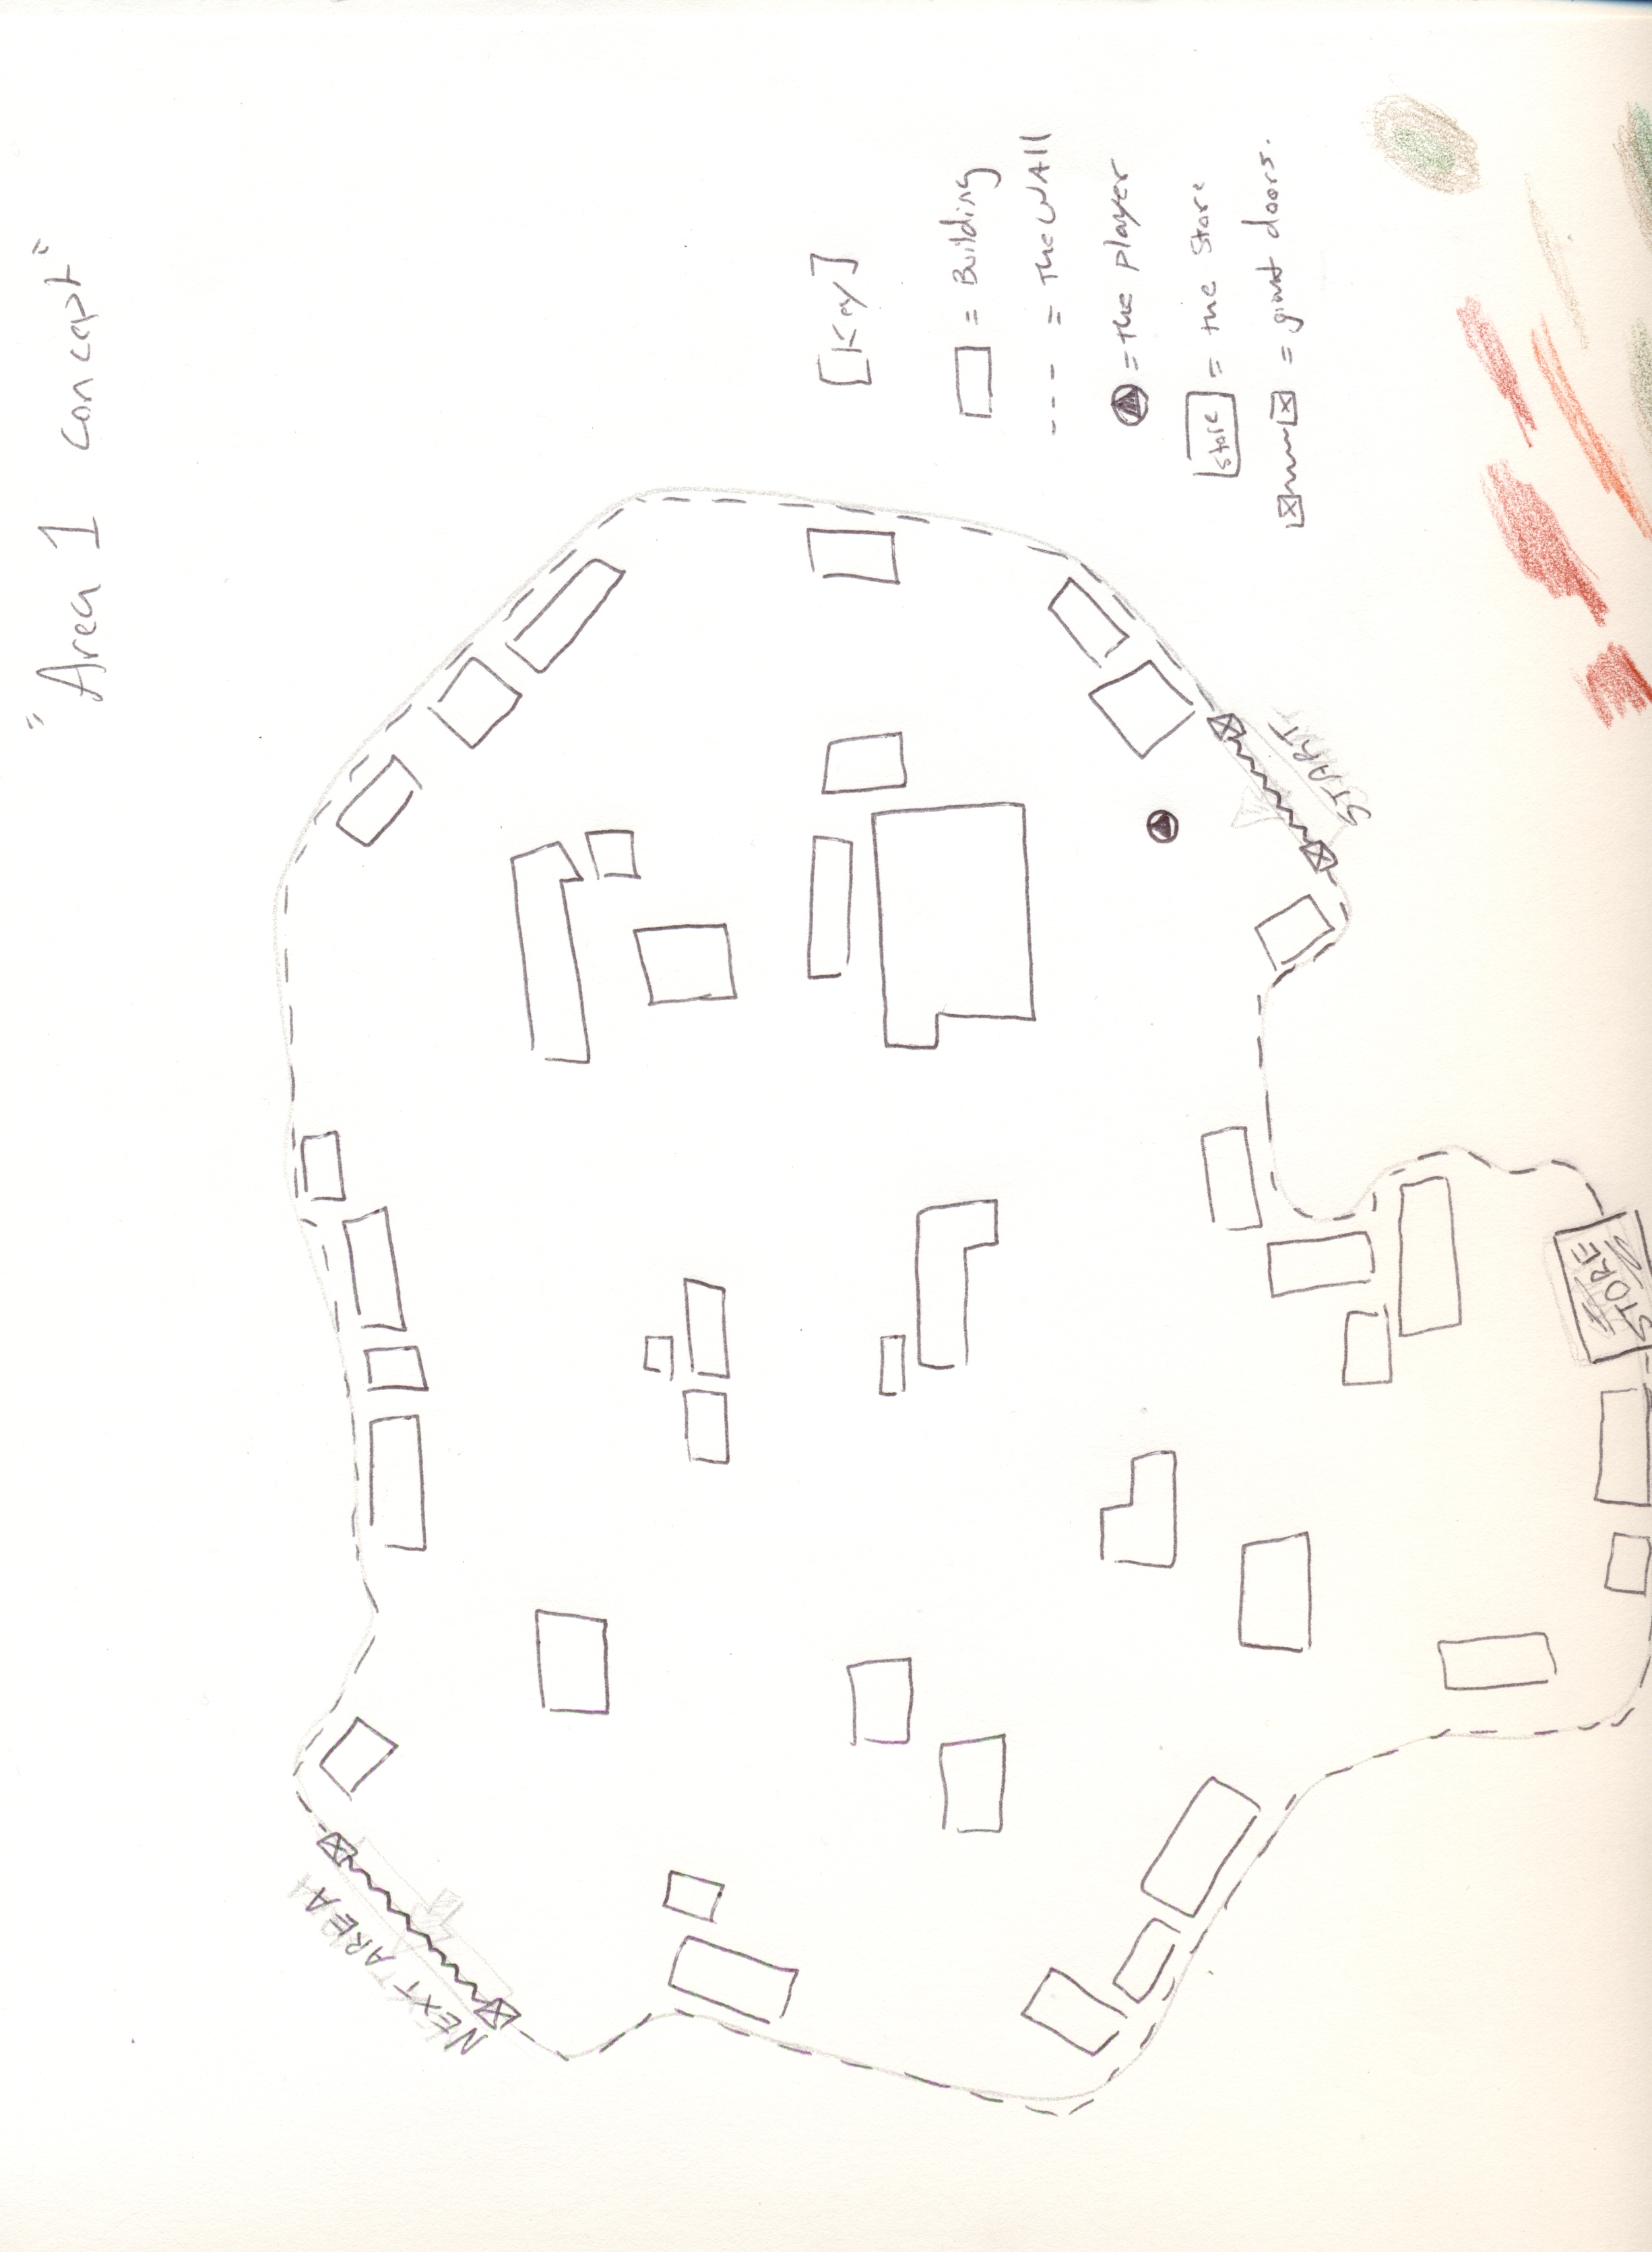 "Area 1 concept"
[Key]
= Building
--- = The WAll
= the player
store = the store
= giant doors.
START
STORE
NEXT AREA